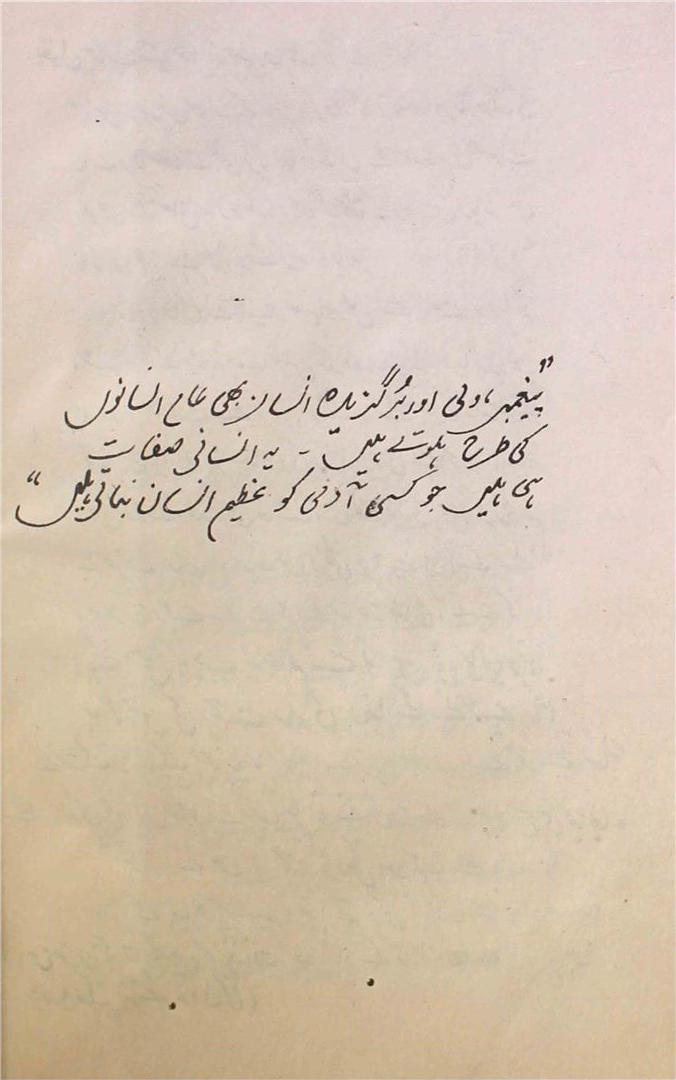 "پیغمبر، ولی اور برگزیدہ انسان بھی عام انسانوں
کی طرح ہوتے ہیں ۔ یہ انسانی صفات
ہی ہیں جو کسی آدمی کو عظیم انسان بناتی ہیں"